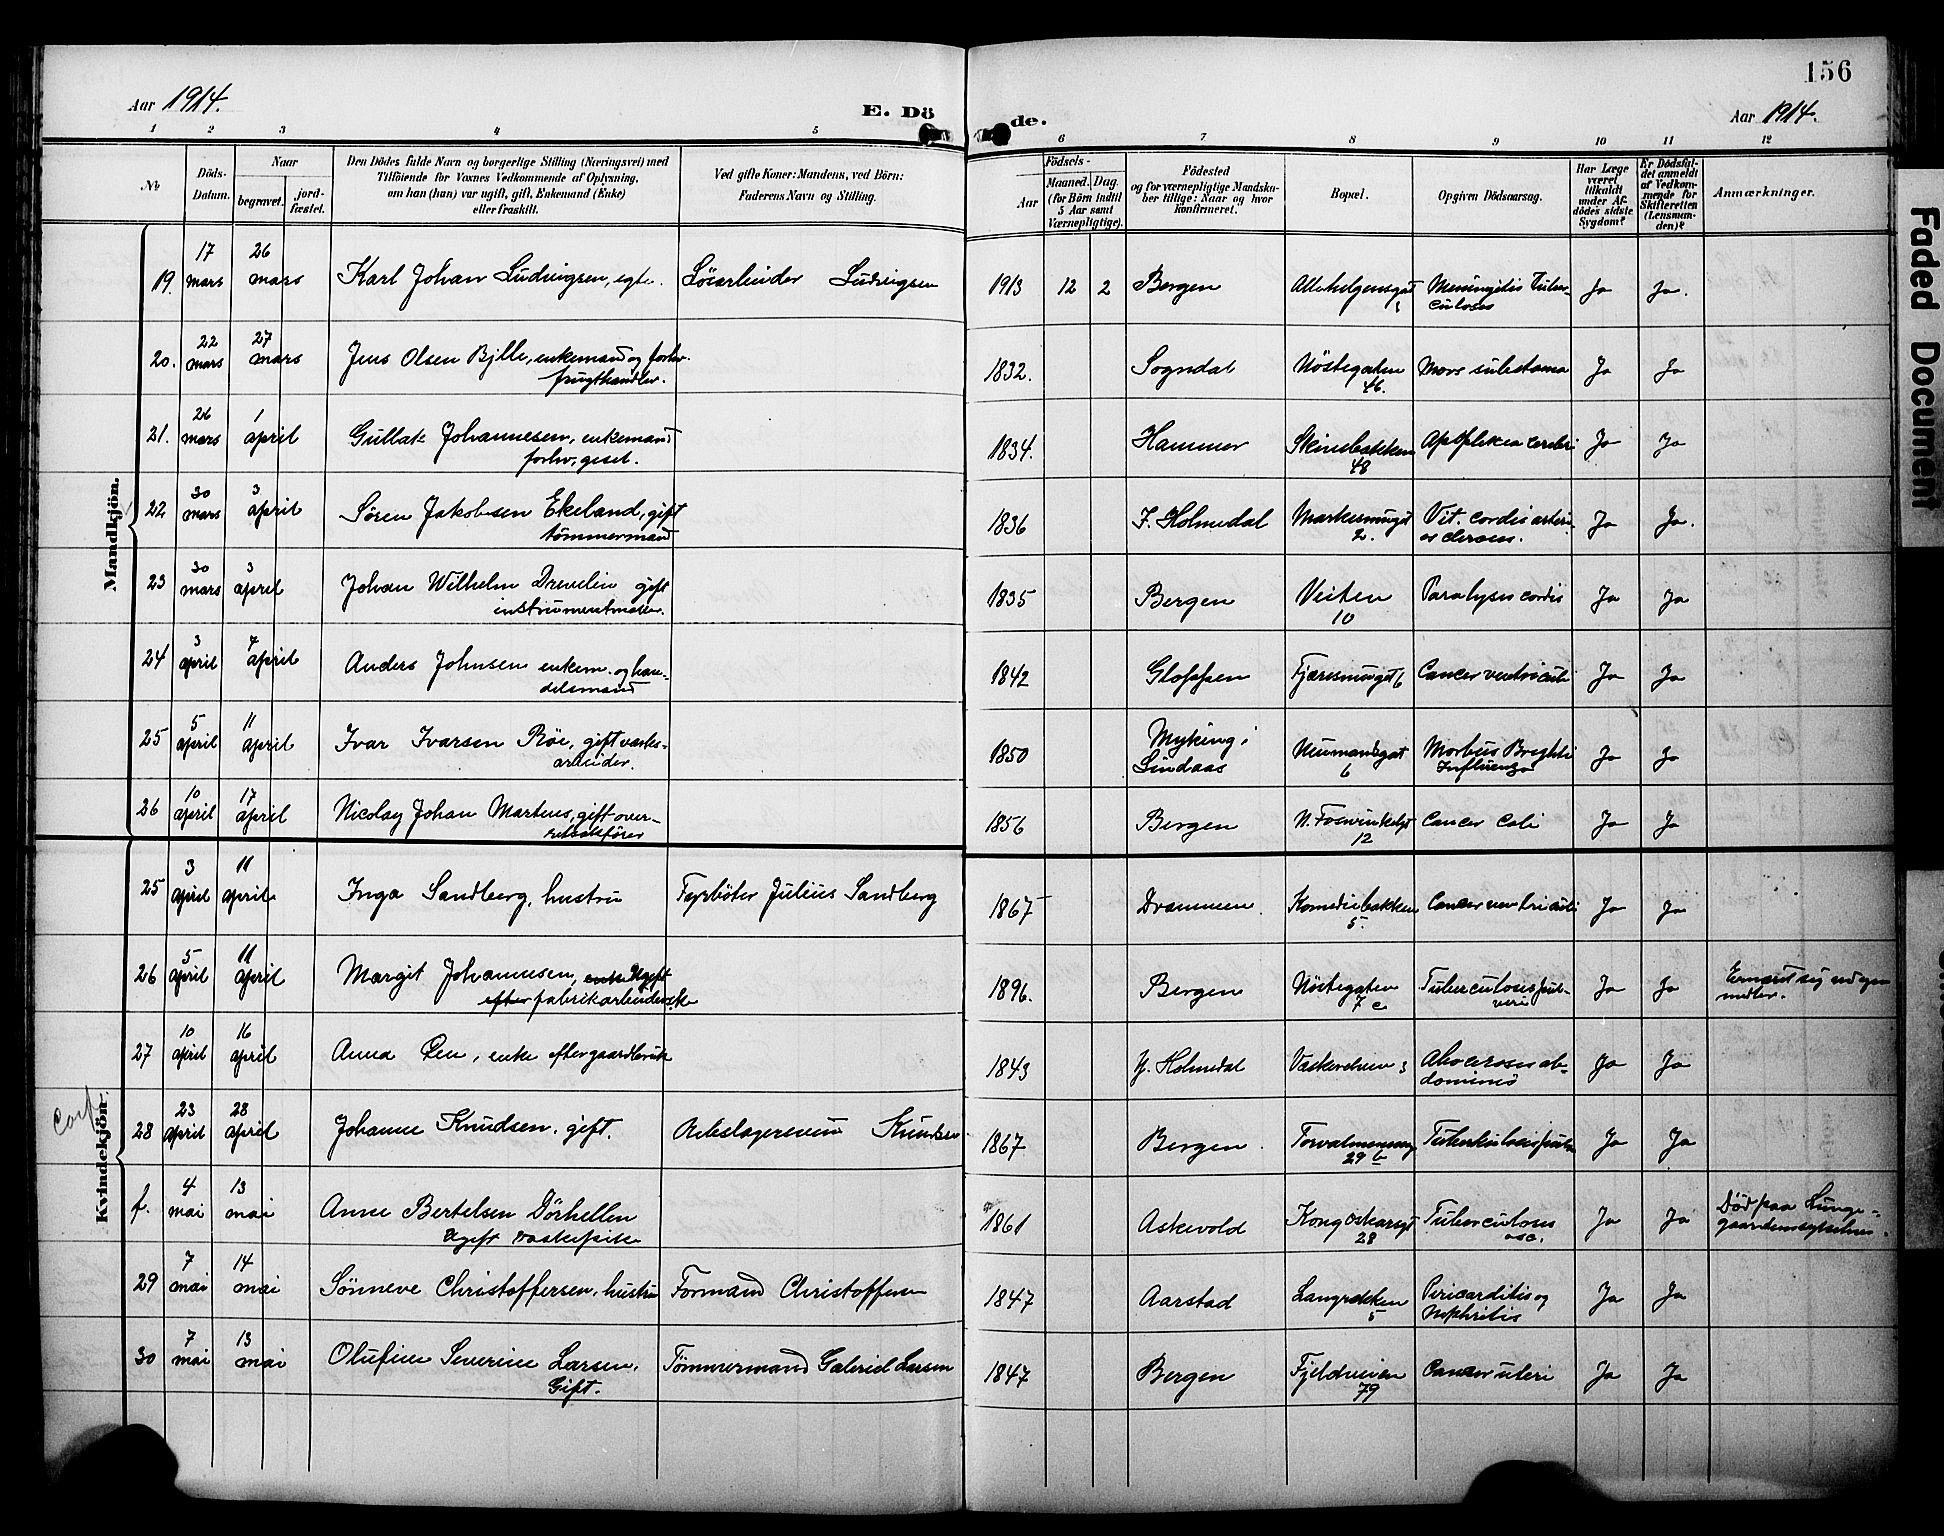 Aar 1914.
E. Dö
de.
156
Aar 1914.
1 2 3 4 5 6 7 8 9 10 11 12
No
Döds-
Datum.
Naar
begravet.
jord-
fæstet.
Den Dödes fulde Navn og borgerlige Stilling (Næringsvei) med
Tilföiende for Voxnes Vedkommende af Oplysning,
om han (hun) var ugift, gift, Enkemand (Enke)
eller fraskilt.
Ved gifte Koner: Mandens, ved Börn:
Faderens Navn og Stilling.
Födsels-
Aar
Maaned. Dag.
(for Börn indtil
5 Aar samt
Værnepligtige).
Födested
og for værnepligtige Mandska-
ber tillige: Naar og hvor
konfirmeret.
Bopæl.
Opgiven Dödsaarsag.
Har Læge
været
tilkaldt
under Af-
dödes sidste
Sygdom?
Er Dödsfal-
det anmeldt
af Vedkom-
mende for
Skifteretten
(Lensman-
den)?
Anmærkninger.
Mandkjön.
19. 17 mars 26 mars Karl Johan Ludvigsen, egte. Lösarbeider Ludvigsen 1913 12 2 Bergen Allehelgensgat Meningitis Tuber-
culoses Ja Ja.
20. 22 mars 27 mars Jens Olsen Bjille, enkemand og forhv.
frugthandler. 1832. Sogndal Nöstegaten
46. Mors subetanea Ja Ja
21. 26 mars 1 april Johannesen, enkemand
forhv. 1834. Hammer
48 Apoplexia cerebri Ja Ja
22 30 mars 3 april Sören Jakobsen Ekeland, gift
tömmermand 1836 Y. Holmedal
2. Vit. cordis arteri
Ja Ja.
23 30 mars 3 april Johan Wilhelm Drevelin gift
instrumentmaker. 1835 Bergen Veiten
10 Paralysis cordis Ja Ja
24 3 april 7 april Anders Johnsen enkem. og han-
delsmand 1842 Gloppen 6 Cancer ventriculi Ja Ja
25 5 april 11 april Ivar Ivarsen Röe, gift
arbeider. 1850 Myking i
Lindaas Neumandsgat
6 Morbus Brightii
Influenza Ja Ja
26 10 april 17 april Nicolay Johan Martens, gift over-
retssakförer 1856 Bergen
12 Cancer Coli Ja Ja
Kvindekjön.
25 3 april 11 april Inga Sandberg, hustru Fyrböter Julius Sandberg 1867 Drammen Komediebakken
5. Cancer ventriculi Ja Ja
26 5 april 11 april Margit Johannesen, enke Ugift
efter fabrikarbeiderske 1896. Bergen Nöstegaten
7 c Tuberculosis pul-
Ja Ja Ernæret sig ved egne
midler.
27 10 april 16 april Anna enke efter gaardbruk 1843 Y. Holmedal 3 ab-
dominis Ja Ja
corp
28 23 april 28 april Johanne Knudsen, gift. Knudsen 1867 Bergen
29 b Ja Ja
f. 4 mai 13 mai Anne Bertelsen Dörhellen
Ugift vaskepike 1861 Askevold Kong Oskarsgt
28 Tuberculosis
Ja Ja Död paa Lunge-
gaardens
29 7 mai 14 mai Sönneve Christoffersen, hustru Formand Christoffersen 1847 Aarstad
5 Pericarditis og
Nephritis Ja Ja
30 7 mai 13 mai Olufine Severine Larsen.
Gift. Tömmermand Gabriel Larsen 1847 Bergen Fjeldveien
79 Cancer uteri Ja Ja
Faded Document